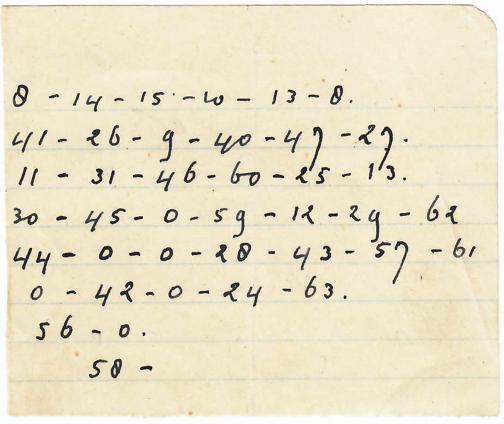 8 - 14 - 15 - 10 - 13 - 8.
41 - 26 - 9 - 40 - 47 - 27.
11 - 31 - 46 - 60 - 25 - 13.
30 - 45 - 0 - 59 - 12 - 29 - 62
44 - 0 - 0 - 28 - 43 - 57 - 61
0 - 42 - 0 - 24 - 63.
56 - 0.
58 -